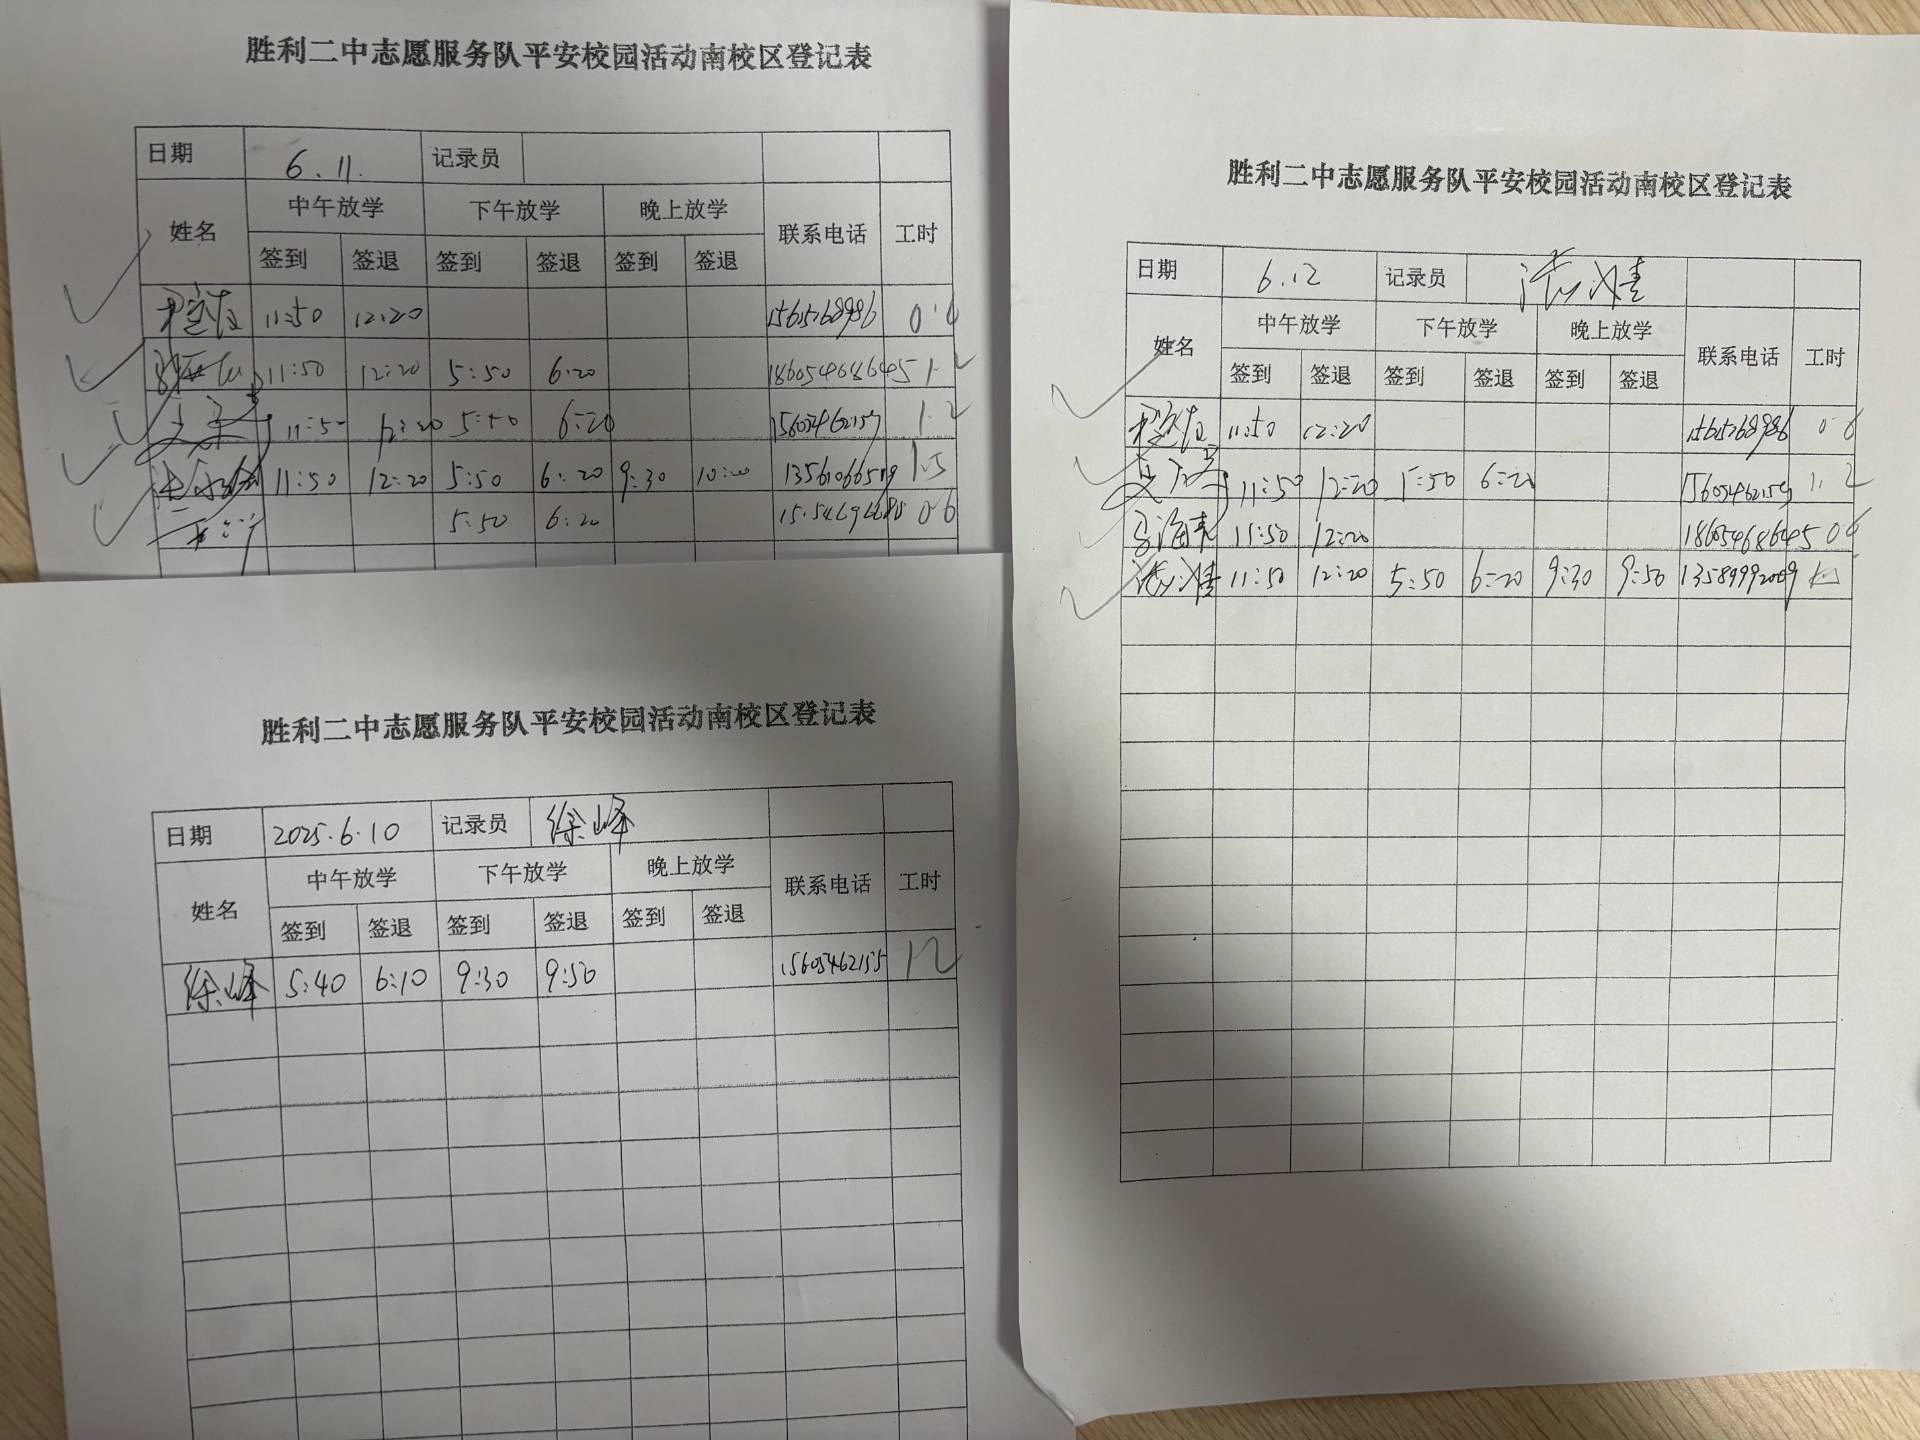 胜利二中志愿服务队平安校园活动南校区登记表
日期 6.11. 记录员
姓名 中午放学 下午放学 晚上放学 联系电话 工时
签到 签退 签到 签退 签到 签退
11:50 12:20 15615268986
11:50 12:20 5:50 6:20 18605468645 1.2
11:50 12:20 5:50 6:20 1.2
11:50 12:20 5:50 6:20 9:30 10:00 1.5
5:50 6:20 0.6
胜利二中志愿服务队平安校园活动南校区登记表
日期 2025.6.10 记录员 徐峰
姓名 中午放学 下午放学 晚上放学 联系电话 工时
签到 签退 签到 签退 签到 签退
徐峰 5:40 6:10 9:30 9:50 15605462155 1.2
胜利二中志愿服务队平安校园活动南校区登记表
日期 6.12 记录员
姓名 中午放学 下午放学 晚上放学 联系电话 工时
签到 签退 签到 签退 签到 签退
11:50 12:20 15615268986 0.6
11:50 12:20 5:50 6:20 1.2
11:50 12:20 18605468645 0.6
11:50 12:20 5:50 6:20 9:30 9:50 13589992009